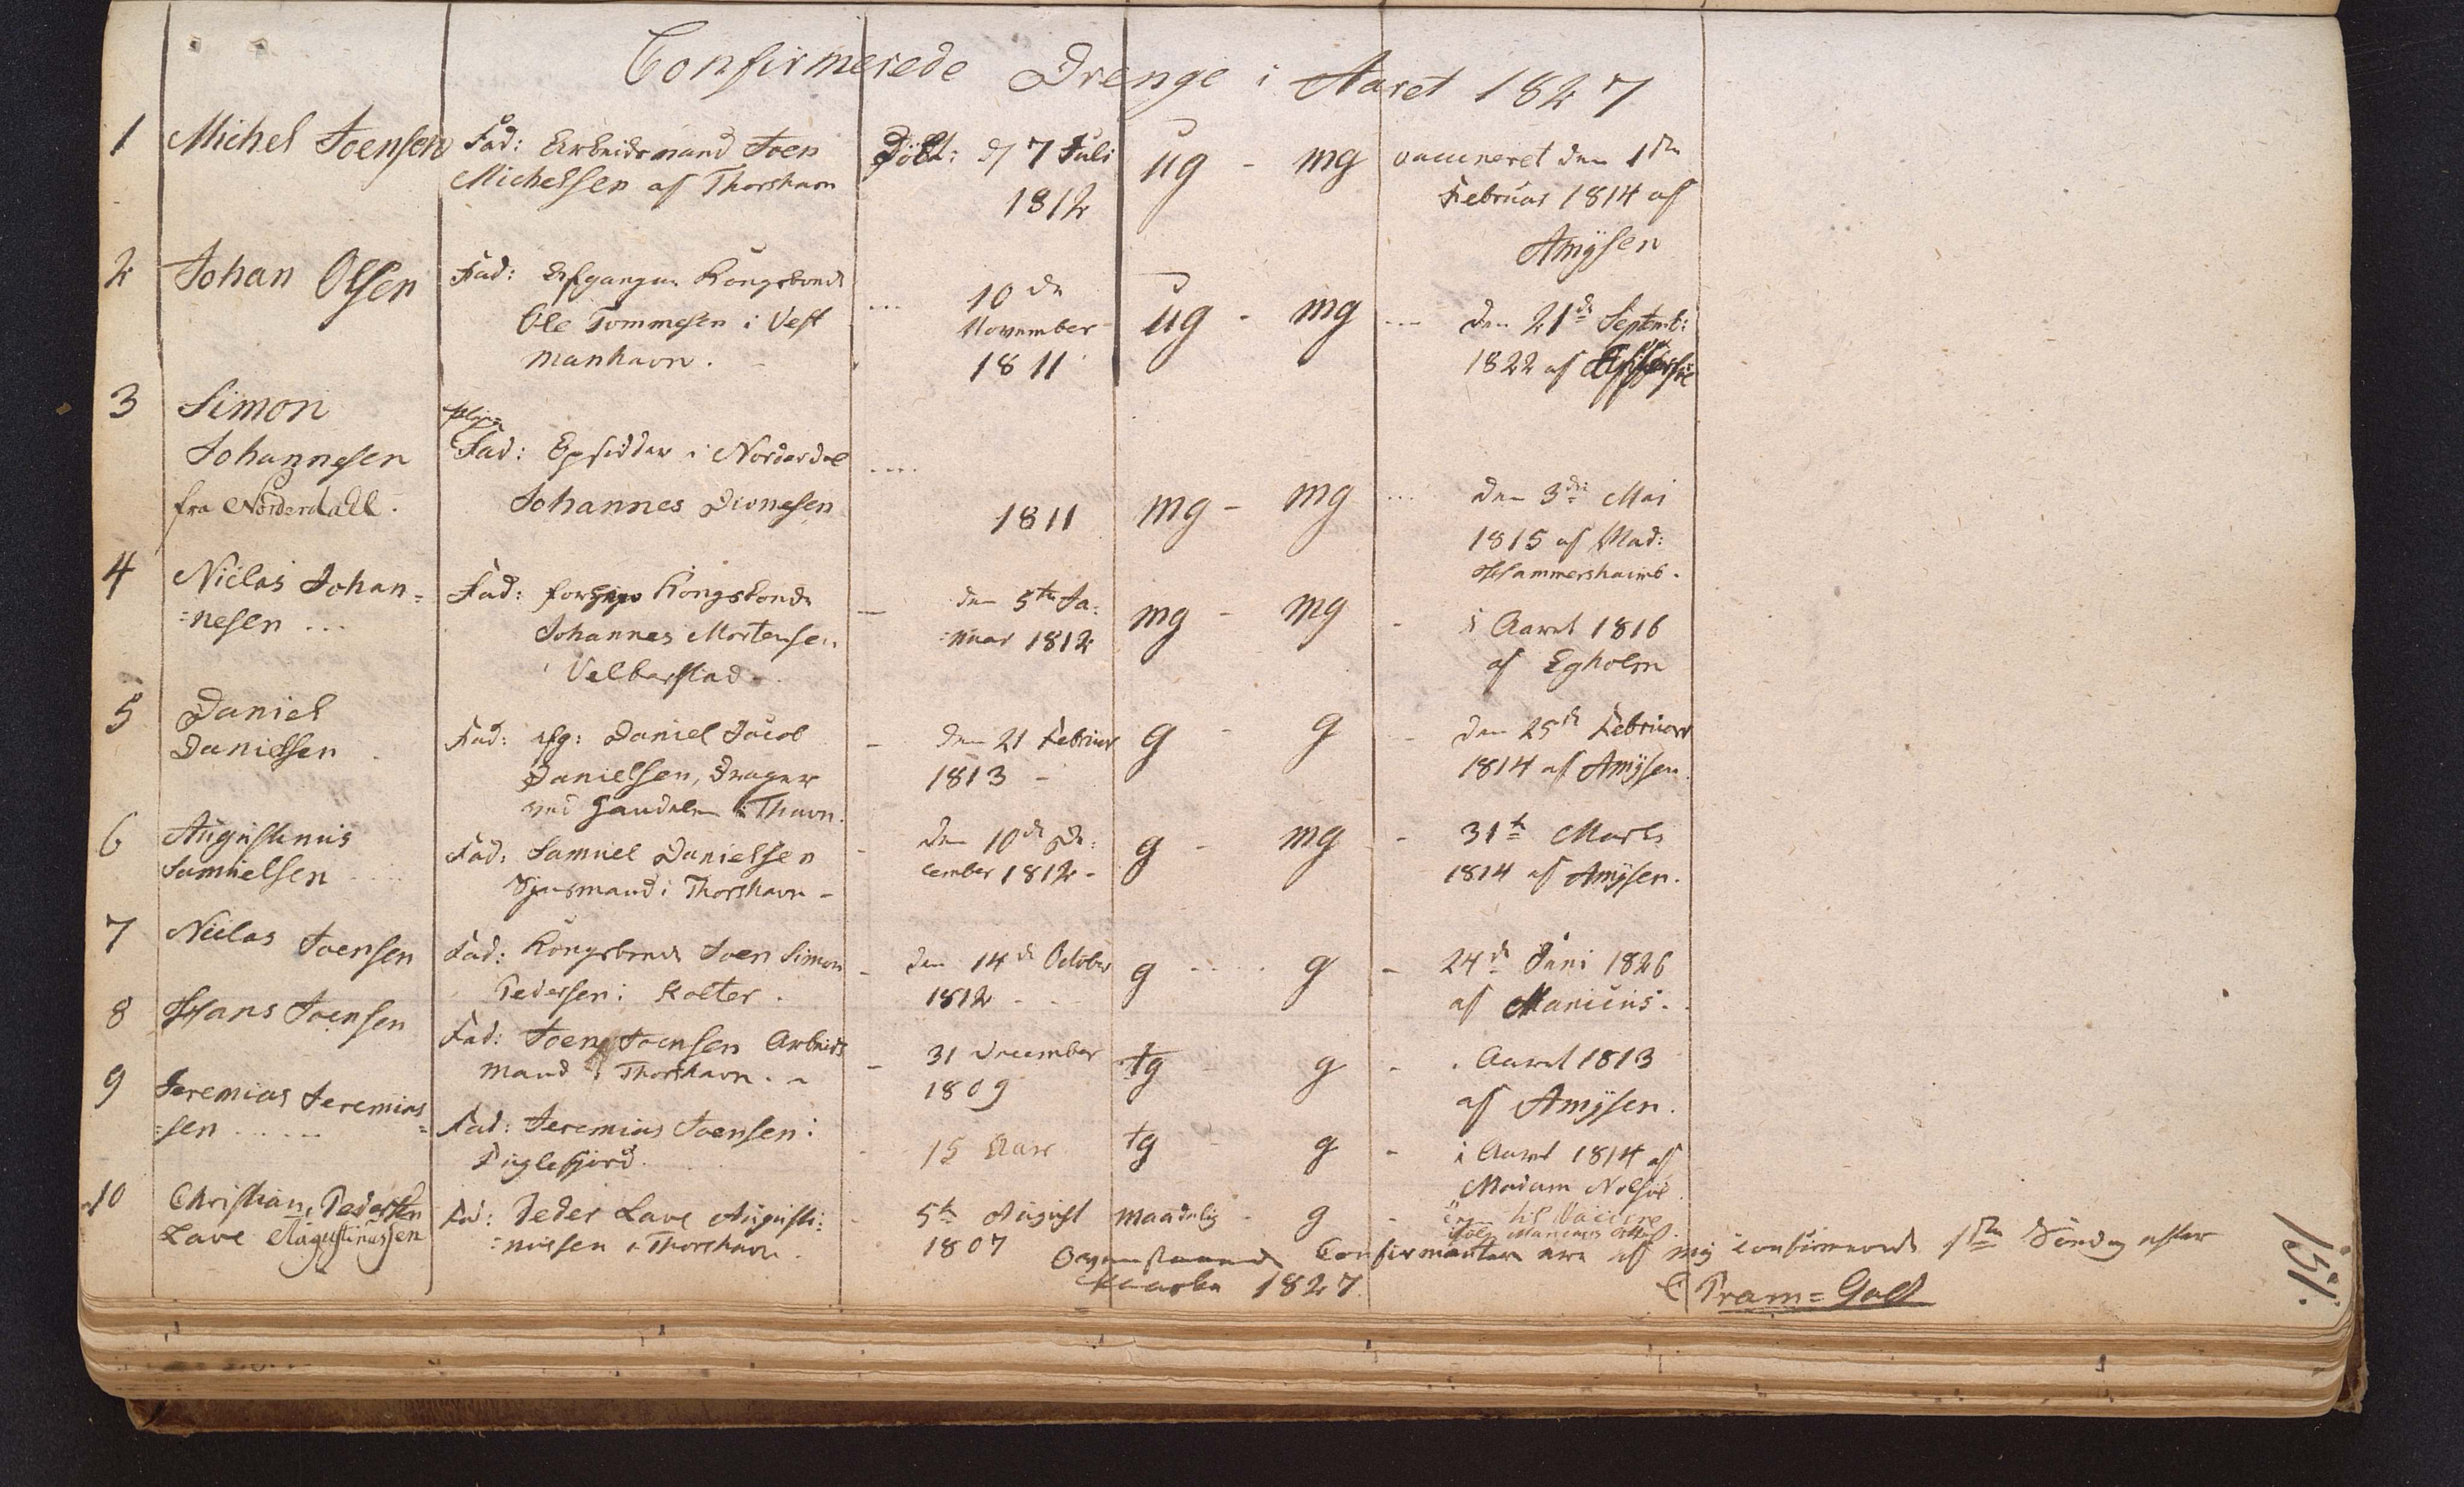 Confirmerede Drenge i Aaret 1827
1 Michel Joensen
Fad: Arbeidsmand Joen
Michelsen af Thorshavn
Døbt: d 7 Juli
1812
ug - mg
vaccineret den 1ste
Februar 1814 af
Amÿsen
2 Johan Olsen
Fad: Kongsbonde
Ole Tommesen i Vest
manhavn.
... 10de
November
1811
ug - mg
... den 21de Septemb:
1822 af
3 Simon
Johannesen
fra Norderdahl.
Pleje=
Fad: Opsidder i Norderdal
Johannes Dionesen
....
1811
mg - mg
... den 3die Mai
1815 af Mad:
Hammershaimb.
4 Niclas Johan=
=nesen ...
Fad: Kongsbonde
Johannes Mortensen
i Velbarstad.
- den 5te Ja:
=nuar 1812
mg - mg
- i Aaret 1816
af Egholm
5 Daniel
Danielsen
Fad: afg: Daniel Jacob
Danielsen, Drager
ved Handelen i Thavn.
- den 21 Februar
1813 -
g - g
- den 25de Februar
1814 af Amÿsen.
6 Augustinus
Samuelsen
Fad: Samuel Danielsen
i Thorshavn -
- den 10de De:
cember 1812 -
g - mg
- 31te Marts
1814 af Amÿsen.
7 Niclas Joensen
Fad: Kongsbonde Joen Simon
Pedersen i Kolter.
- den 14de October
1812
g - g
- 24de Juni 1826
af Manicus.
8 Hans Joensen
Fad: Joen Joensen Arbeids
mand i Thorshavn. -
- 31 December
1809
tg - g
- i Aaret 1813
af Amÿsen.
9 Jeremias Jeremias=
=sen
Fad: Jeremias Joensen i
Fuglefjord.
- 15 Aar
tg - g
- i Aaret 1814 af
Madam Nolsøe
10 Christian Pedersen
Lave Augustinussen
Fad: Peder Lave Augusti:
=nussen i Thorshavn.
- 5te August
1807
maadelig - g
- Vaccine
Manicus Attest.
Ovenstaaende Confirmanter ere af mig confirmerede 1ste Søndag efter
Paaske 1827.
C Pram=Gad
151.